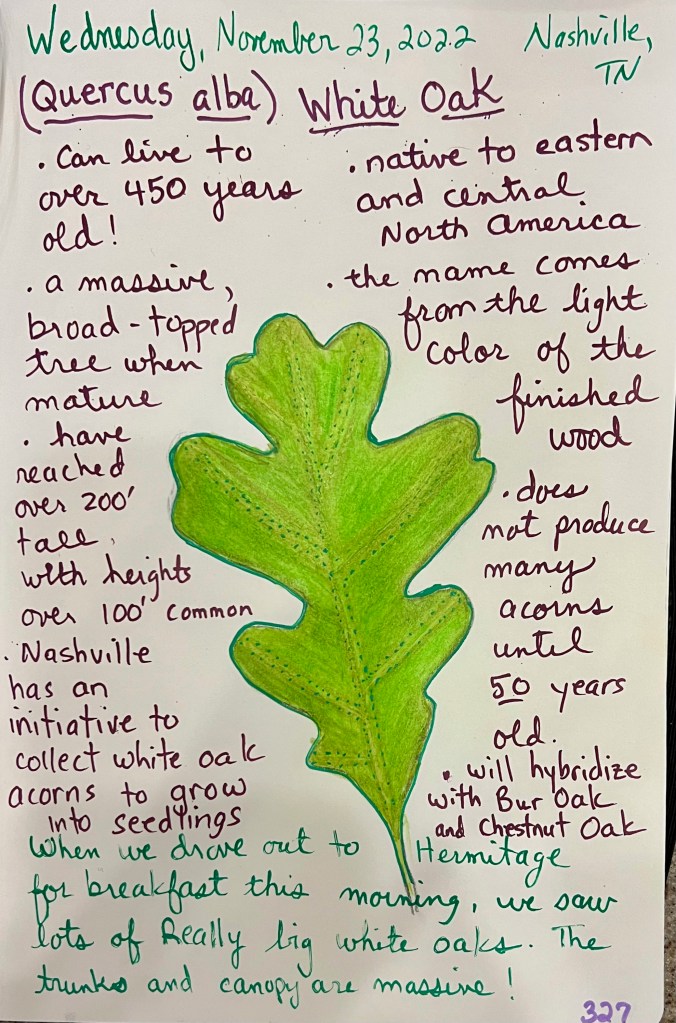 Wednesday, November 23, 2022 Nashville,
TN
(Quercus alba) White Oak
. Can live to
over 450 years
old!
. a massive,
broad-topped
tree when
mature
. have
reached
over 200'
tall,
with heights
over 100' common
. Nashville
has an
initiative to
collect white oak
acorns to grow
into seedlings
. native to eastern
and central
North America
. the name comes
from the light
color of the
finished
wood
. does
not produce
many
acorns
until
50 years
old.
. will hybridize
with Bur Oak
and Chestnut Oak
When we drove out to Hermitage
for breakfast this morning, we saw
lots of Really big white oaks. The
trunks and canopy are massive!
327